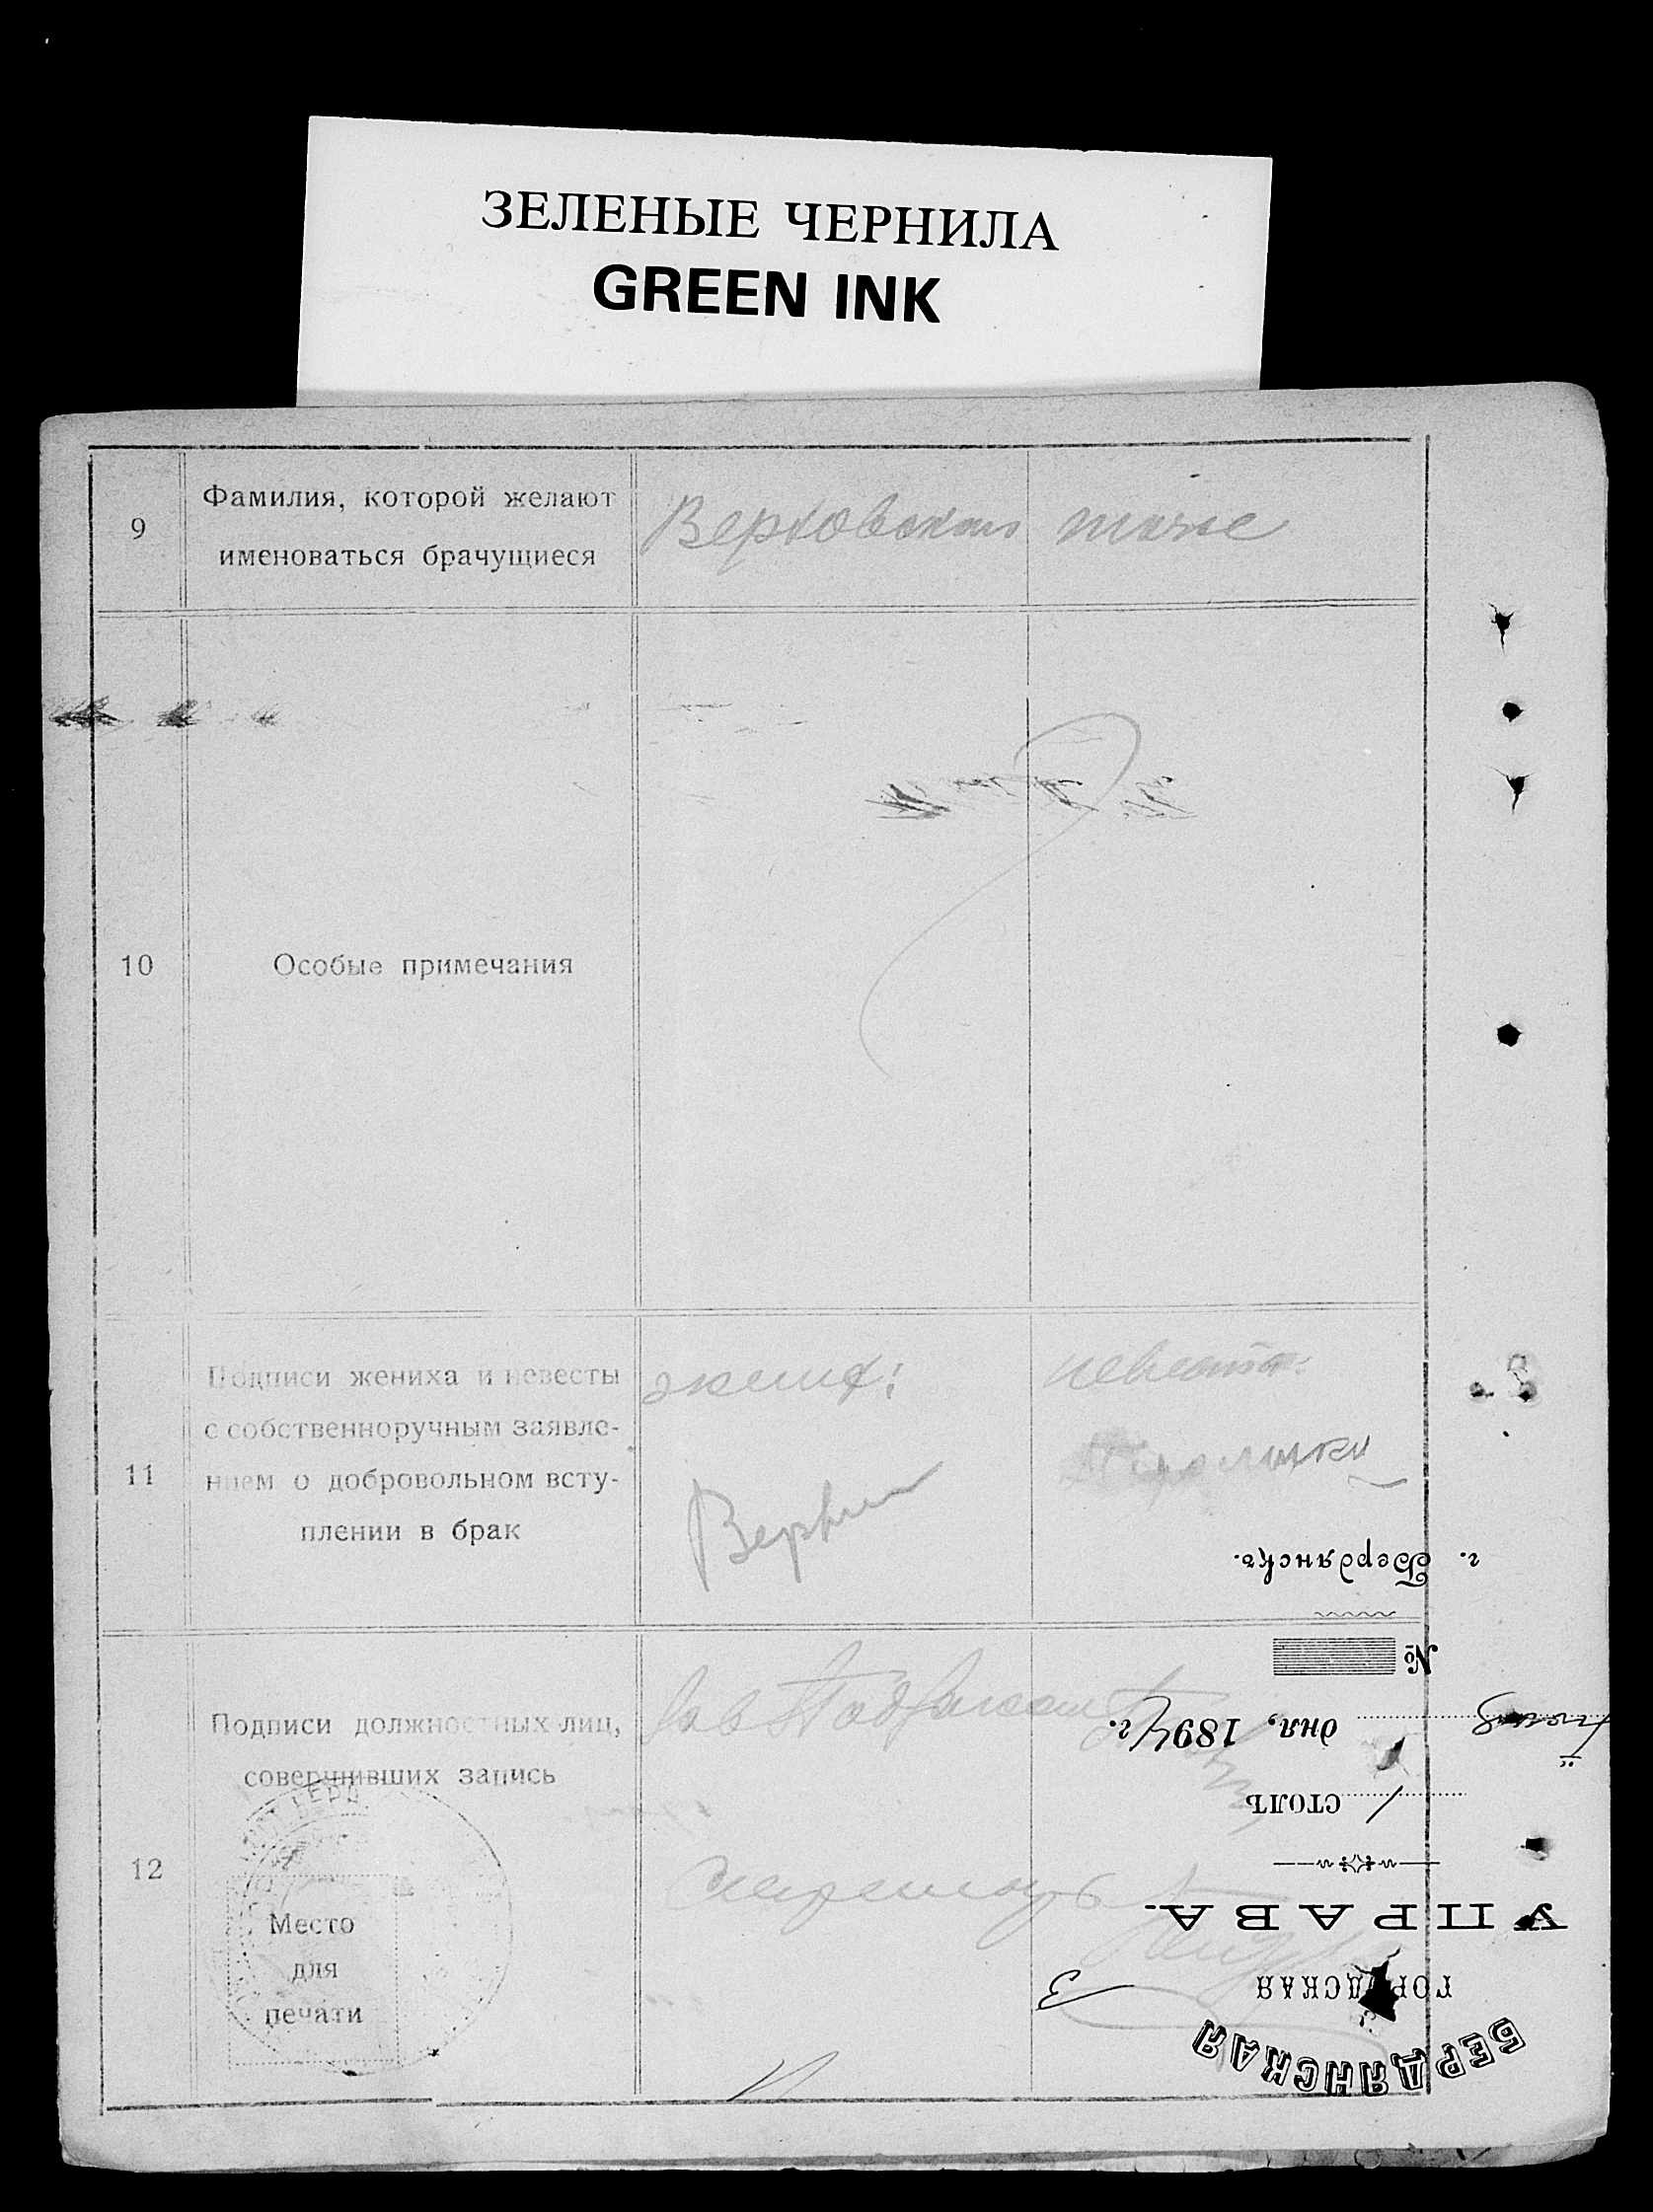 ЗЕЛЕНЫЕ ЧЕРНИЛА
GREEN INK
9
Фамилия, которой желают
именоваться брачущиеся
тоже
10
Особые примечания
11
Подписи жениха и невесты
с собственноручным заявле-
нием о добровольном всту-
плении в брак
жених:
невеста:
12
Подписи должностных лиц,
совершивших запись
Место
для
печати
секретарь
БЕРДЯНСКАЯ
ГОРОДСКАЯ
УПРАВА.
столъ
дня, 1894 г.
№
г. Бердянскъ.